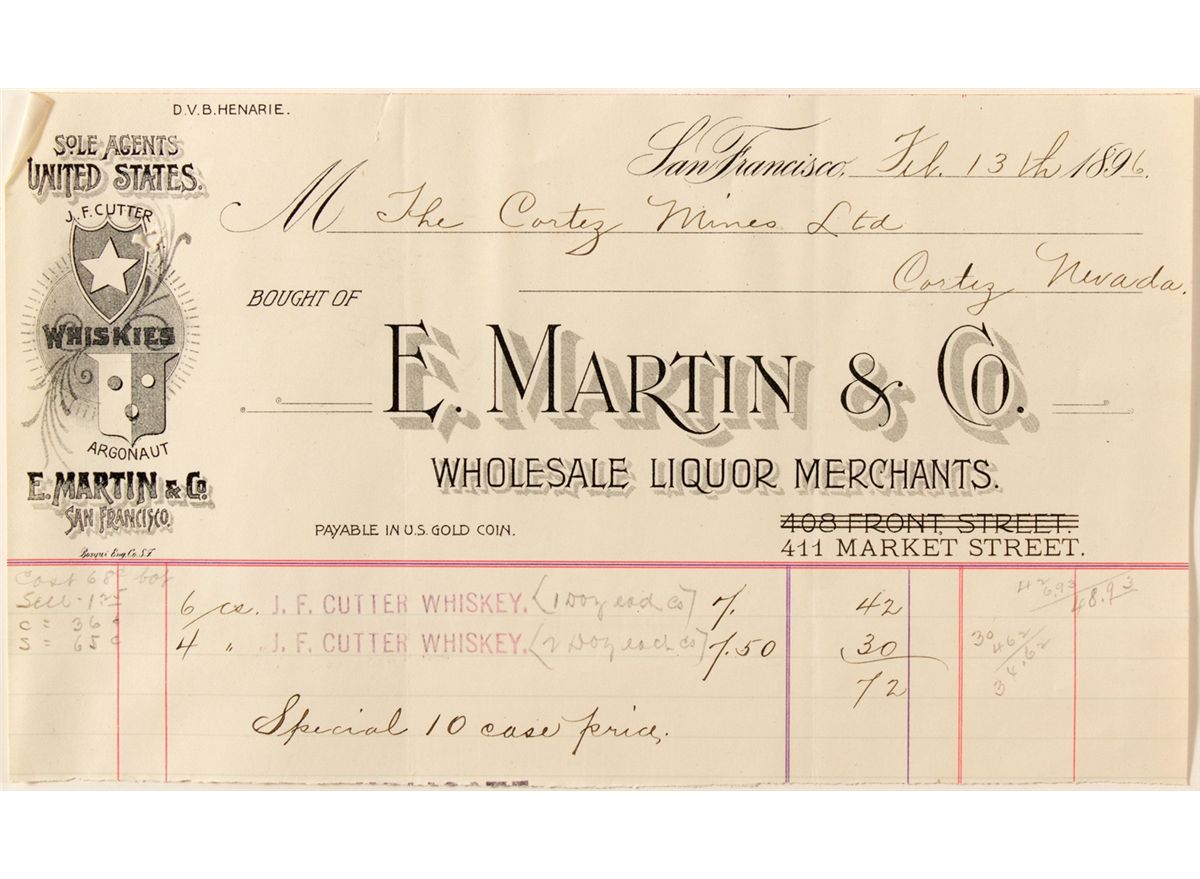 D.V.B. HENARIE.
SOLE AGENTS
UNITED STATES.
J. F. CUTTER
WHISKIES
ARGONAUT
E. MARTIN & CO.
SAN FRANCISCO.
San Francisco, Feb. 13th 1896.
M The Cortez Mines Ltd
Cortez Nevada.
BOUGHT OF
E. MARTIN & CO.
WHOLESALE LIQUOR MERCHANTS.
PAYABLE IN U.S. GOLD COIN.
408 FRONT, STREET.
411 MARKET STREET.
Cost 68c bot
Sell - 1.25
C = 36c
S = 65c
6 cs. J. F. CUTTER WHISKEY. (1 Doz each cs) 7. 42
4 " J. F. CUTTER WHISKEY. (2 Doz each cs) 7.50 30
72
Special 10 case price.
42
6.93
48.93
30
4.62
34.62